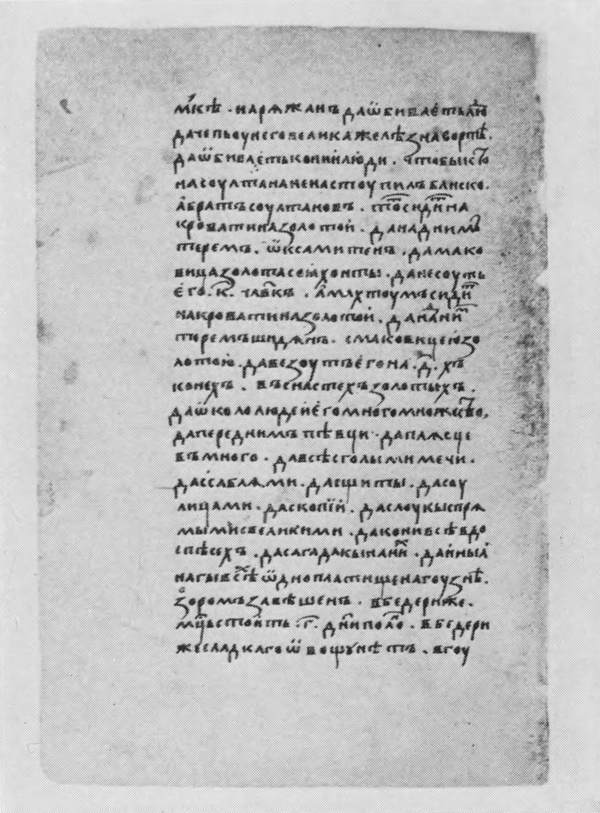 мкѣ · наряжанъ да ѿбиваеть лю
да чепь оу него велика желѣзна во рте.
да ѿбиваеть кони и люди · чтобы кто
на соултана не настоупилъ блиско.
а братъ соултановъ. тот сидит на
кровати на золотой · да над ним
терем ъ · ѡксамитенъ · да мако
вица золота со яхонты · да несоуть
его · к҃ · члвкъ · а махтоумъ сидит
на кровати на золотой · да над ним
теремъ шидянъ · с маковицею зо
лотою · да везоуть его на · д҃ · хъ
конехъ · въ снастехъ золотыхъ ·
да ѡколо людей его много множство,
да перед нимъ пѣвци · да плясце
въ много · да всѣ с голыми мечи ·
да с саблями · да с щиты · да с оу
лицами · да с копии · да с лоукы с пря
мыми с великими · да кони всѣ в до
спѣсехъ · да сагадакы на них · да иныа
нагыѣ всѣ ѡдно платище на гоузнѣ ·
зоромъ завѣшенъ · в бедери же ·
мць стоить · г҃ · дни полно · в бедери
же сладкаго ѡвощу нѣтъ · в гоу